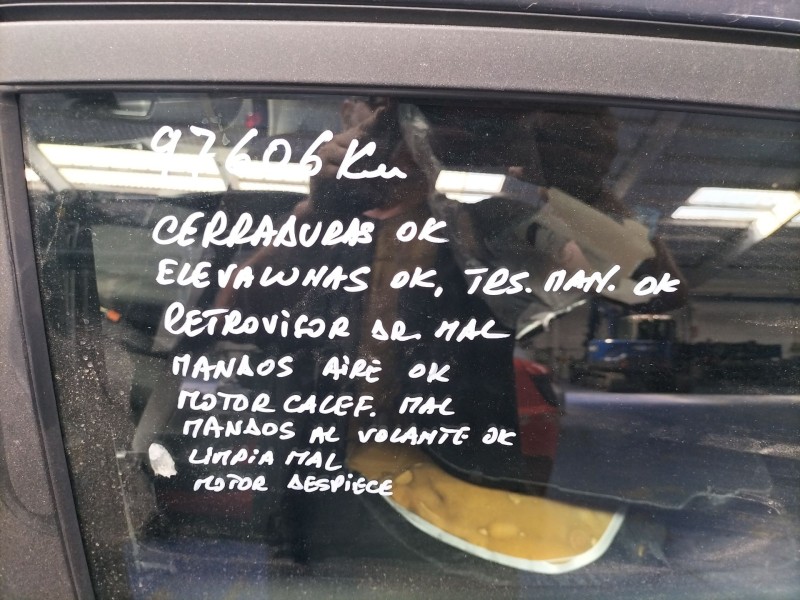 97606 Km
CERRADURAS OK
ELEVALUNAS OK, TRS. MAN. OK
RETROVISOR DR. MAL
MANDOS AIRE OK
MOTOR CALEF. MAL
MANDOS AL VOLANTE OK
LIMPIA MAL
MOTOR DESPIECE